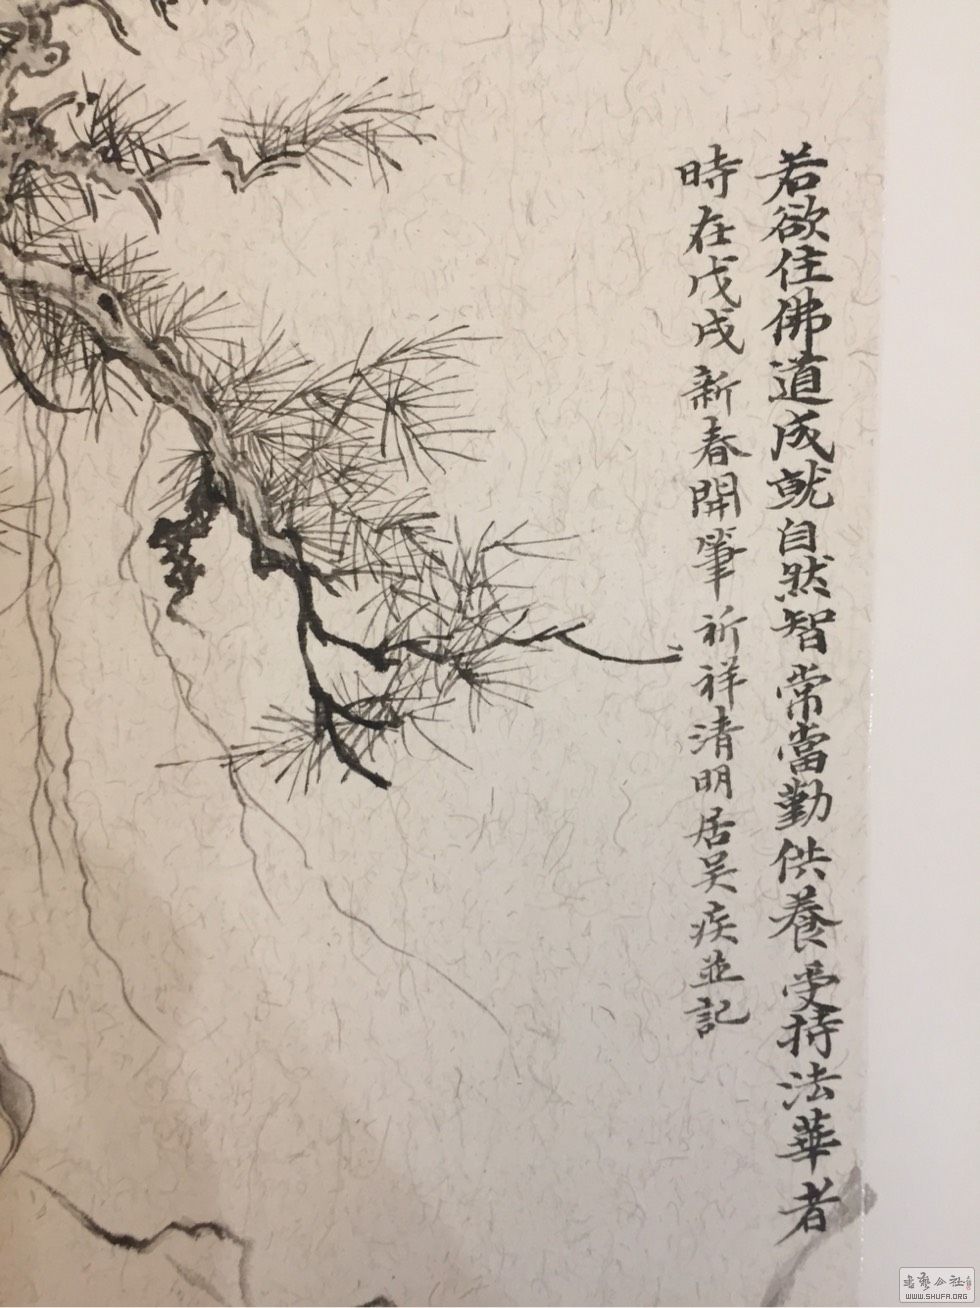 若欲住佛道成就自然智常當勤供養受持法華者
時在戊戌新春開筆祈祥清明居吴疾並記
書艺公社
WWW.SHUFA.ORG